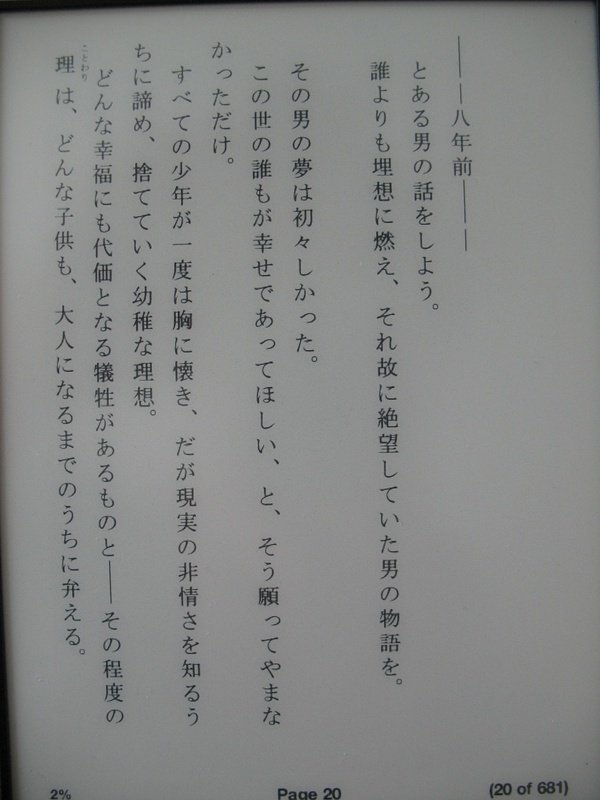 ――八年前――
とある男の話をしよう。
誰よりも理想に燃え、それ故に絶望していた男の物語を。
その男の夢は初々しかった。
この世の誰もが幸せであってほしい、と、そう願ってやまな
かっただけ。
すべての少年が一度は胸に懐き、だが現実の非情さを知るう
ちに諦め、捨てていく幼稚な理想。
どんな幸福にも代価となる犠牲があるものと――その程度の
理は、どんな子供も、大人になるまでのうちに弁える。
ことわり
2%
Page 20
(20 of 681)